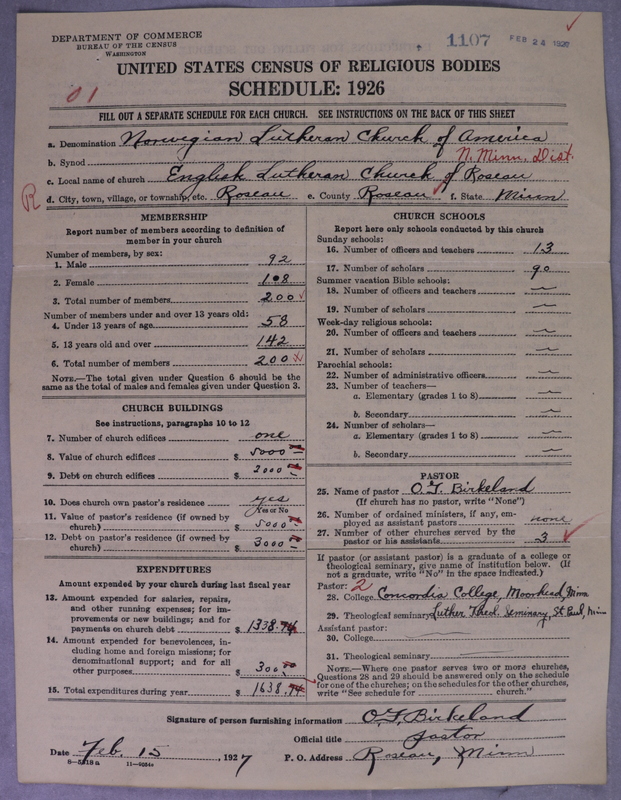 DEPARTMENT OF COMMERCE
BUREAU OF THE CENSUS
WASHINGTON
1107 FEB 24 1927
UNITED STATES CENSUS OF RELIGIOUS BODIES
SCHEDULE: 1926
01
FILL OUT A SEPARATE SCHEDULE FOR EACH CHURCH. SEE INSTRUCTIONS ON THE BACK OF THIS SHEET
a. Denomination Norwegian Lutheran Church of America
b. Synod N. Minn. Dist.
c. Local name of church English Lutheran Church of Roseau
R
d. City, town, village, or township, etc. Roseau e. County Roseau f. State Minn
MEMBERSHIP
Report number of members according to definition of
member in your church
Number of members, by sex:
1. Male 92
2. Female 108
3. Total number of members 200
Number of members under and over 13 years old:
4. Under 13 years of age 58
5. 13 years old and over 142
6. Total number of members 200
NOTE.—The total given under Question 6 should be the
same as the total of males and females given under Question 3.
CHURCH BUILDINGS
See instructions, paragraphs 10 to 12
7. Number of church edifices one
8. Value of church edifices $ 5000
9. Debt on church edifices $ 2000
10. Does church own pastor's residence yes
Yes or No
11. Value of pastor's residence (if owned by
church) $ 5000
12. Debt on pastor's residence (if owned by
church) $ 3000
EXPENDITURES
Amount expended by your church during last fiscal year
13. Amount expended for salaries, repairs,
and other running expenses; for im-
provements or new buildings; and for
payments on church debt $ 1338.74
14. Amount expended for benevolences, in-
cluding home and foreign missions; for
denominational support; and for all
other purposes $ 300
15. Total expenditures during year $ 1638.74
CHURCH SCHOOLS
Report here only schools conducted by this church
Sunday schools:
16. Number of officers and teachers 13
17. Number of scholars 90
Summer vacation Bible schools:
18. Number of officers and teachers
19. Number of scholars
Week-day religious schools:
20. Number of officers and teachers
21. Number of scholars
Parochial schools:
22. Number of administrative officers
23. Number of teachers—
a. Elementary (grades 1 to 8)
b. Secondary
24. Number of scholars—
a. Elementary (grades 1 to 8)
b. Secondary
PASTOR
25. Name of pastor O. F. Birkeland
(If church has no pastor, write "None")
26. Number of ordained ministers, if any, em-
ployed as assistant pastors none
27. Number of other churches served by the
pastor or his assistants 3
If pastor (or assistant pastor) is a graduate of a college or
theological seminary, give name of institution below. (If
not a graduate, write "No" in the space indicated.)
Pastor: 2
28. College Concordia College, Moorhead, Minn
29. Theological seminary Luther Theol. Seminary, St Paul, Minn
Assistant pastor:
30. College
31. Theological seminary
NOTE.—Where one pastor serves two or more churches,
Questions 28 and 29 should be answered only on the schedule
for one of the churches; on the schedules for the other churches,
write "See schedule for church."
Signature of person furnishing information O. F. Birkeland
Official title Pastor
Date Feb. 15, 1927 P. O. Address Roseau, Minn